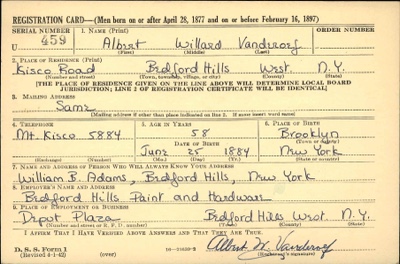 REGISTRATION CARD—(Men born on or after April 28, 1877 and on or before February 16, 1897)
SERIAL NUMBER 1. NAME (Print) ORDER NUMBER
U 459 Albert Willard Vanderoef
(First) (Middle) (Last)
2. PLACE OF RESIDENCE (Print)
Kisco Road Bedford Hills West. N.Y.
(Number and street) (Town, township, village, or city) (County) (State)
[THE PLACE OF RESIDENCE GIVEN ON THE LINE ABOVE WILL DETERMINE LOCAL BOARD
JURISDICTION; LINE 2 OF REGISTRATION CERTIFICATE WILL BE IDENTICAL]
3. MAILING ADDRESS
Same
[Mailing address if other than place indicated on line 2. If same insert word same]
4. TELEPHONE 5. AGE IN YEARS 6. PLACE OF BIRTH
58 Brooklyn
Mt. Kisco 5884 DATE OF BIRTH (Town or county)
June 25 1884 New York
(Exchange) (Number) (Mo.) (Day) (Yr.) (State or country)
7. NAME AND ADDRESS OF PERSON WHO WILL ALWAYS KNOW YOUR ADDRESS
William B. Adams, Bedford Hills, New York
8. EMPLOYER'S NAME AND ADDRESS
Bedford Hills Paint and Hardware
9. PLACE OF EMPLOYMENT OR BUSINESS
Depot Plaza Bedford Hills West. N.Y.
(Number and street or R. F. D. number) (Town) (County) (State)
I AFFIRM THAT I HAVE VERIFIED ABOVE ANSWERS AND THAT THEY ARE TRUE.
D. S. S. Form 1
(Revised 4-1-42) (over) Albert W. Vanderoef
(Registrant's signature)